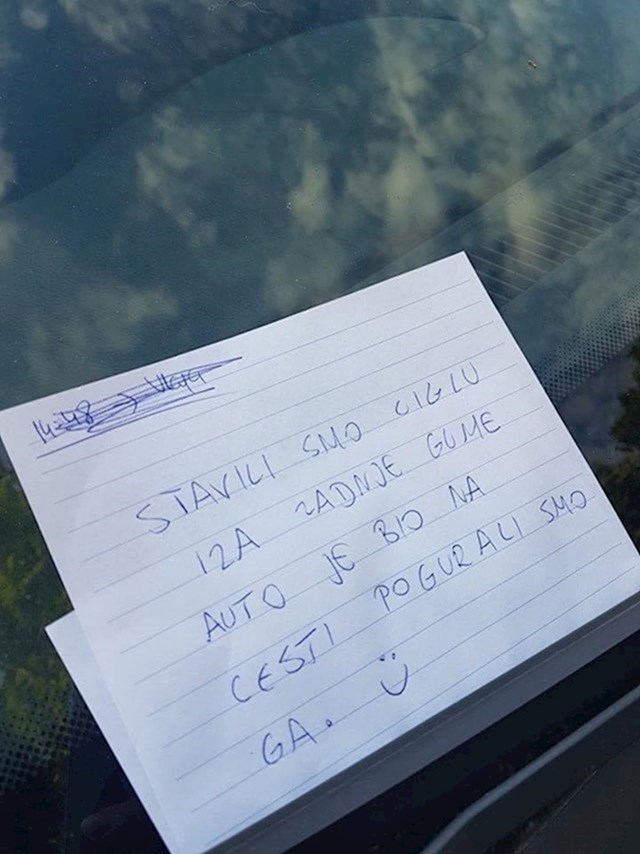 14:48
STAVILI SMO CIGLU
IZA ZADNJE GUME
AUTO JE BIO NA
CESTI POGURALI SMO
GA. Ü